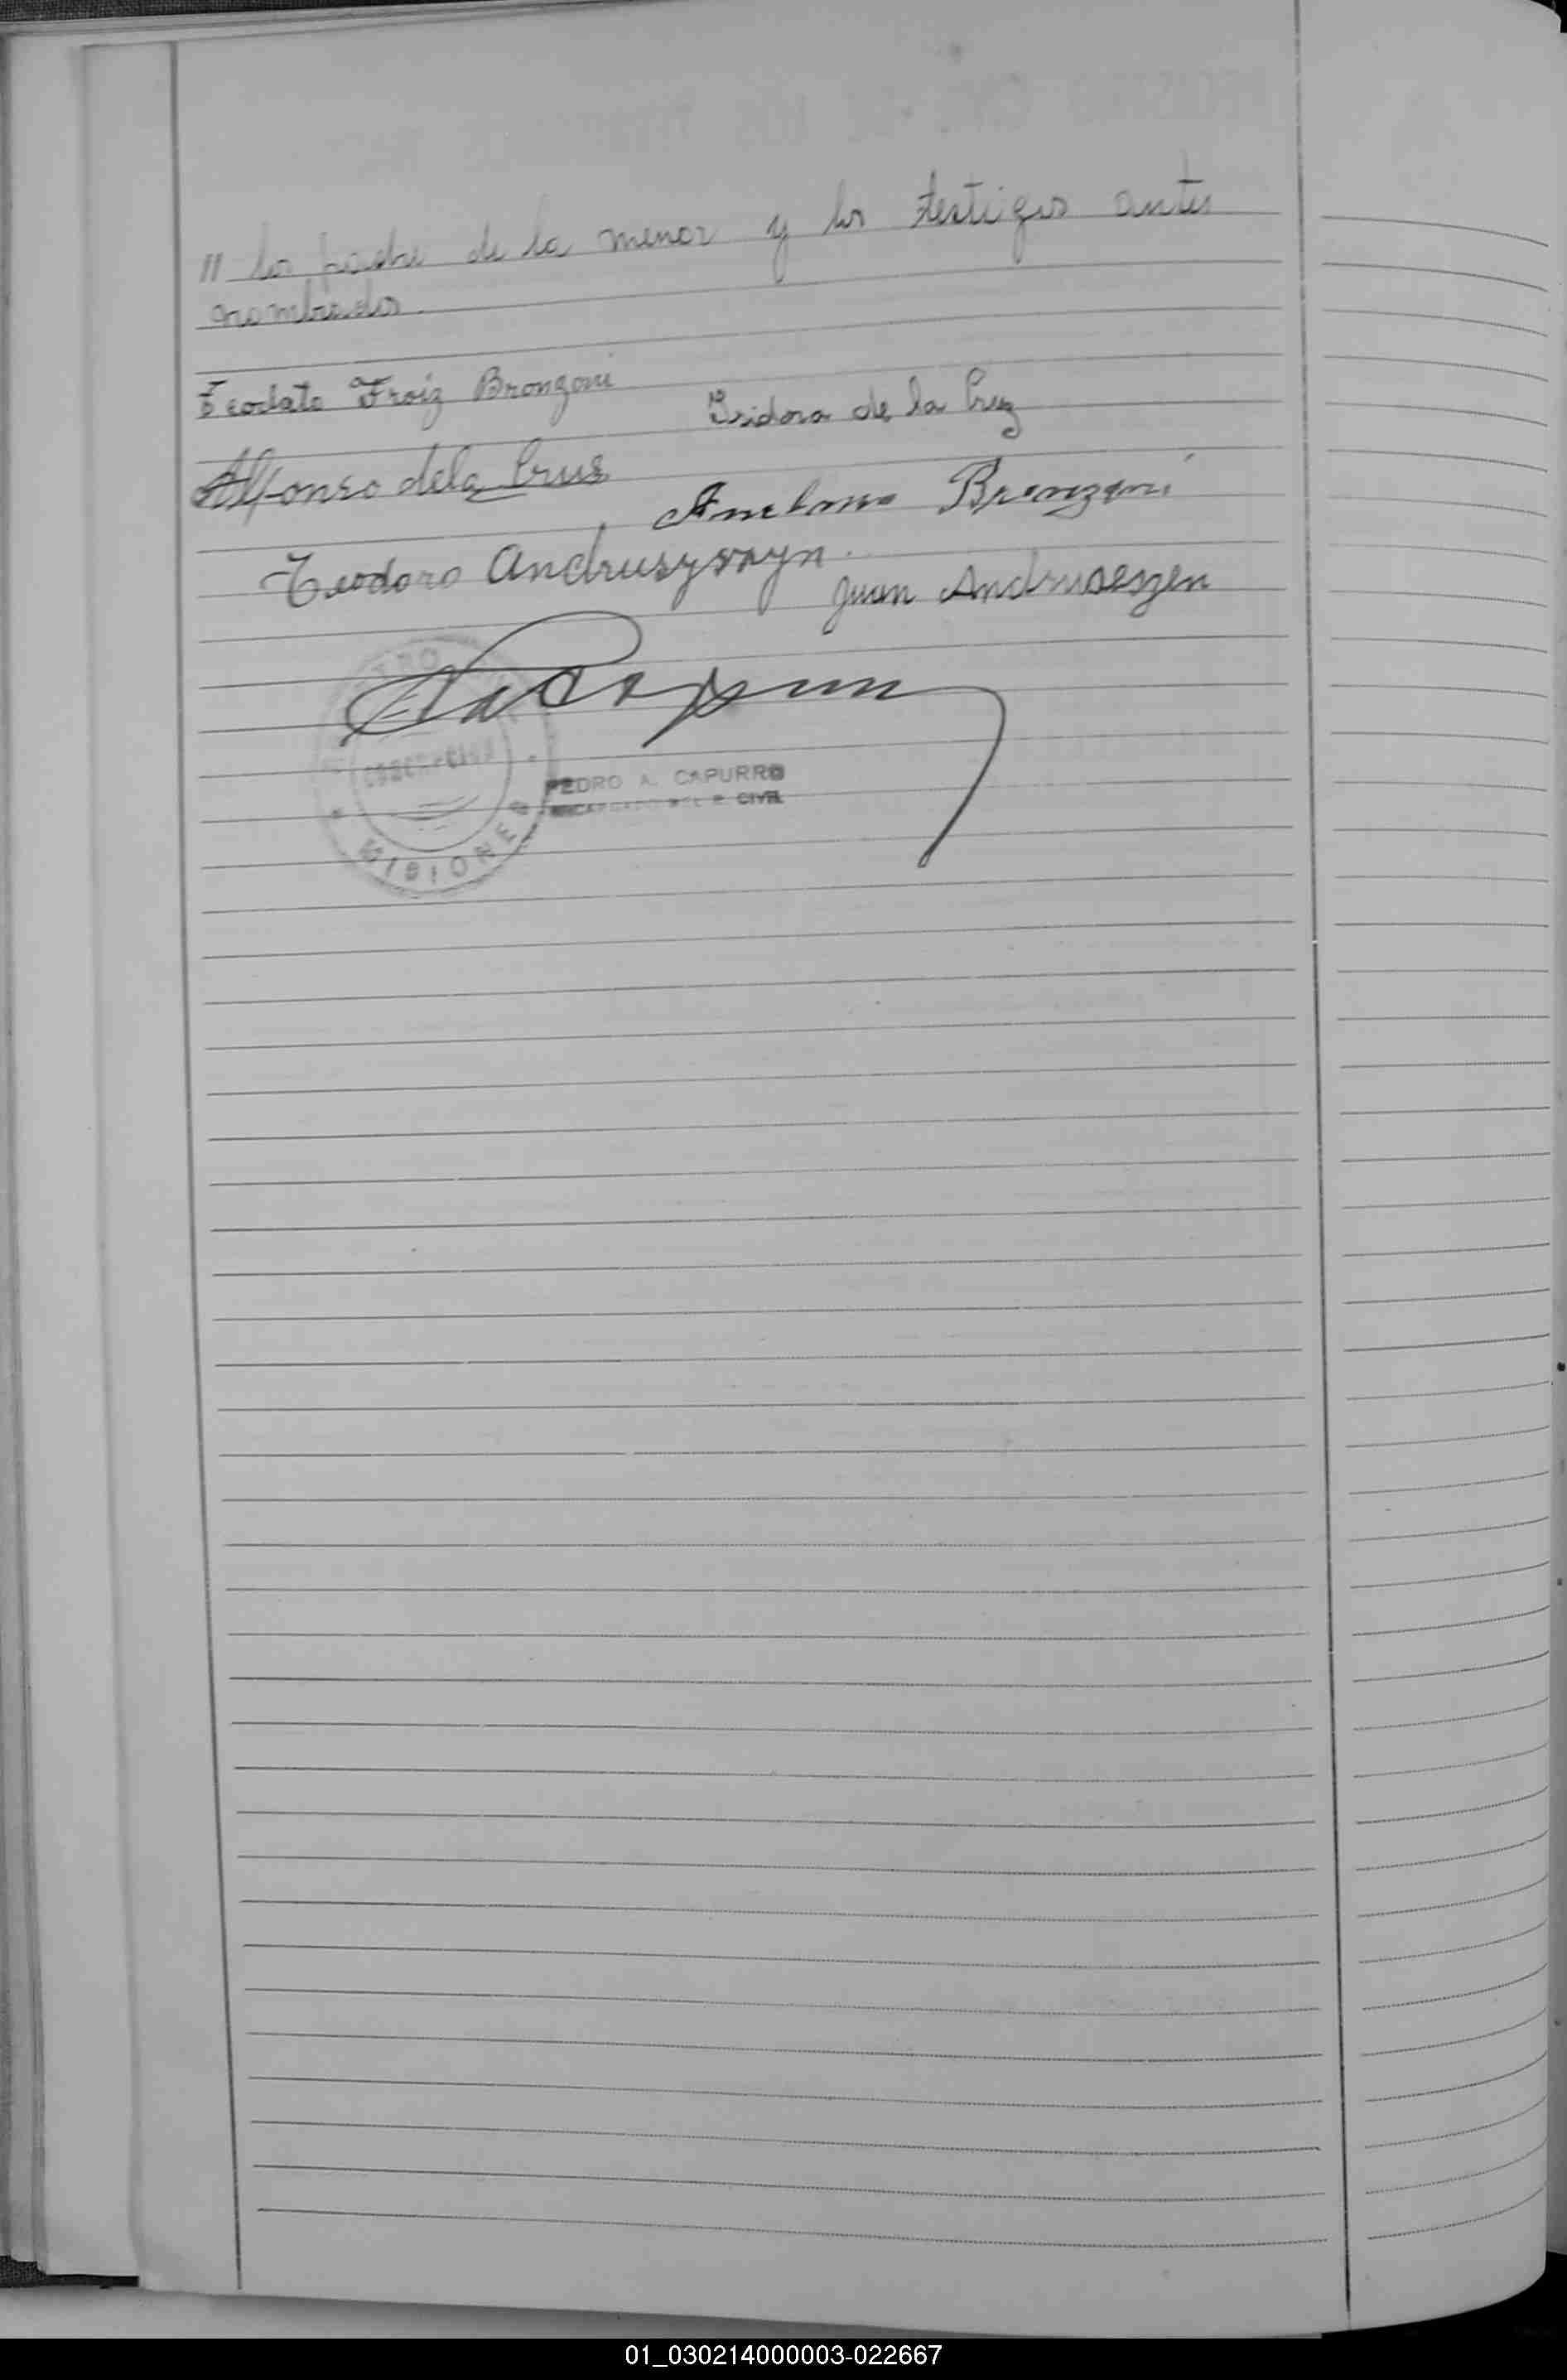 " los padre de la menor y los testigos antes
nombrados.
Teodato Froiz Bronzoni
Isidora de la Cruz
Alfonso dela Crus
Anselmo Bronzoni
Teodoro Andrusyszyn
Juan Andruseszen
MISIONES
PEDRO A. CAPURRO
ENCARGADO DEL R. CIVIL
01_030214000003-022667